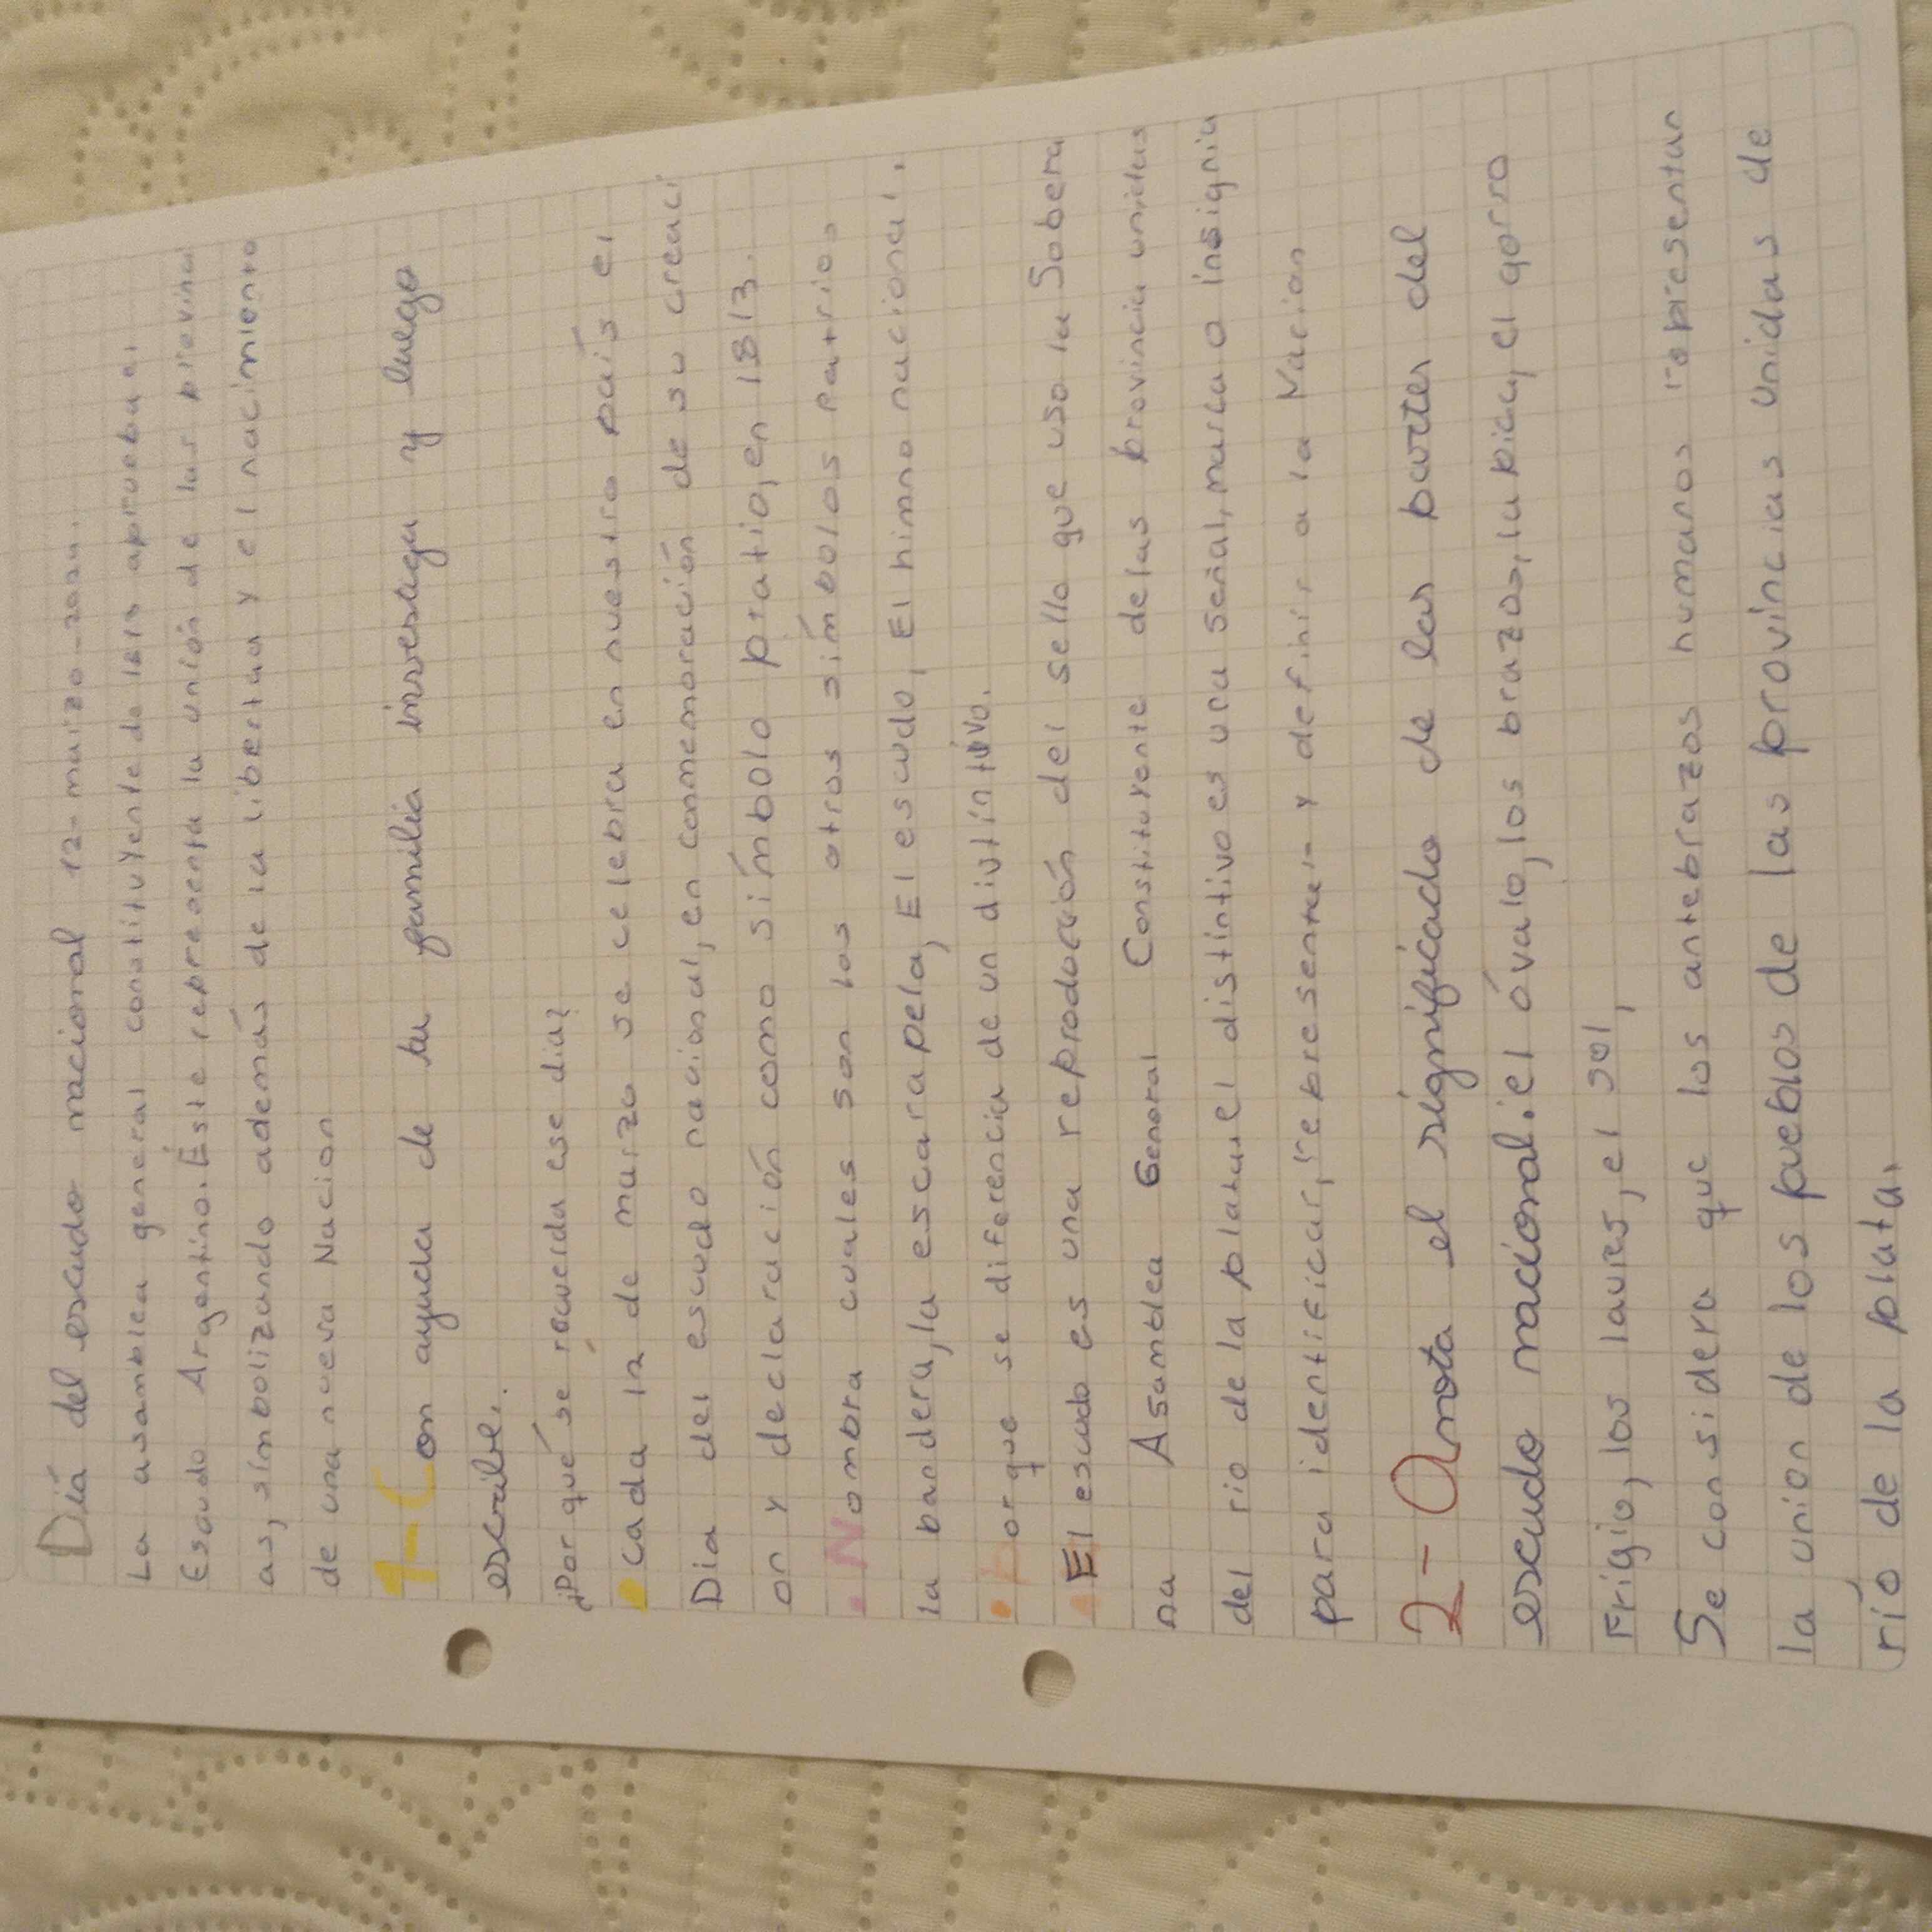 Día del escudo nacional 12-marzo-
La asamblea general constituyente de 1813 aprueba el
Escudo Argentino. Éste representa la unión de las provinci
as, símbolizando además de la libertad y el nacimiento
de una nueva Nacion
1-Con ayuda de tu familia investiga y luego
escribe.
¿Por qué se recuerda ese dia?
• cada 12 de marzo se celebra en nuestro país el
Dia del escudo nacional, en conmemoración de su creaci
on y declaración como símbolo pratio, en 1813.
• Nombra cuales son los otros símbolos patrio.
la bandera, la escarapela, El escudo, El himno nacional.
• Porque se diferencia de un divtíntivo.
El escudo es una reproducción del sello que uso la Sobera
na Asamblea General Constituyente delas provincia unidas
del rio de la plata el distintivo es una señal, marca o insignia
para identificar, representar y definir a la Nacion
2-Anota el significado de las partes del
escudo nacional: el óvalo, los brazos, la pica, el gorro
Frigio, los laures, el sol,
Se considera que los antebrazos humanos representan
la union de los pueblos de las provincias unidas de
río de la plata.